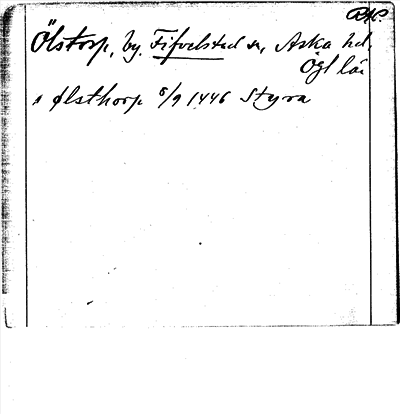 RAP.
Ölstorp, by, Fifvelstad sn, Aska hd,
Ögl län
s Ølsthorp 8/9 1446 Styra